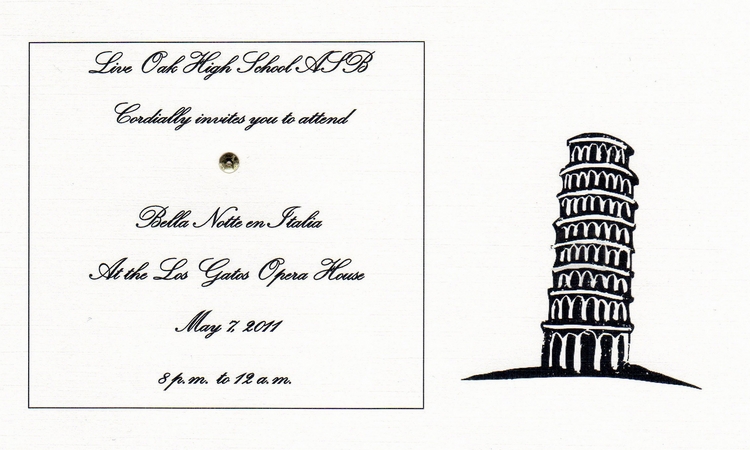 Live Oak High School ASB
Cordially invites you to attend
Bella Notte en Italia
At the Los Gatos Opera House
May 7, 2011
8 p.m. to 12 a.m.